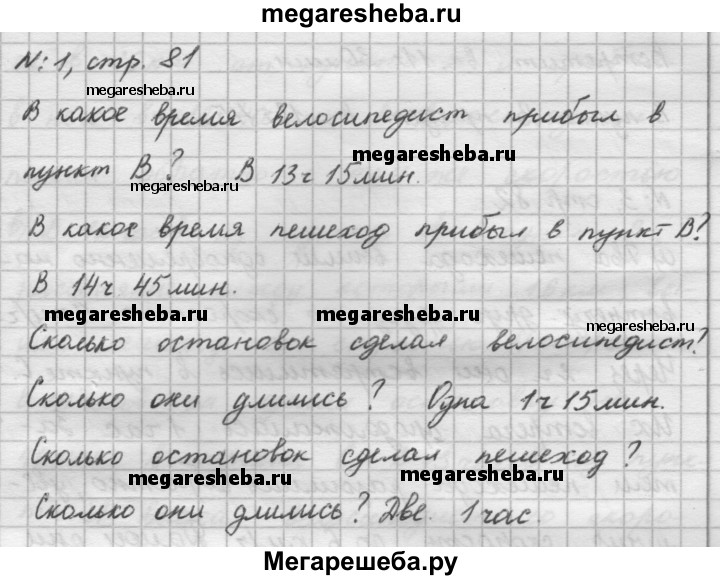 megaresheba.ru
№: 1, стр. 81
megaresheba.ru
В какое время велосипедист прибыл в
megaresheba.ru
пункт В? В 13ч 15мин.
megaresheba.ru
В какое время пешеход прибыл в пункт В?
В 14ч 45мин.
megaresheba.ru megaresheba.ru
megaresheba.ru
Сколько остановок сделал велосипедист?
Сколько они длились? Одна 1ч 15мин.
Сколько остановок сделал пешеход?
megaresheba.ru megaresheba.ru
Сколько они длились? Две. 1 час.
Мегарешеба.ру